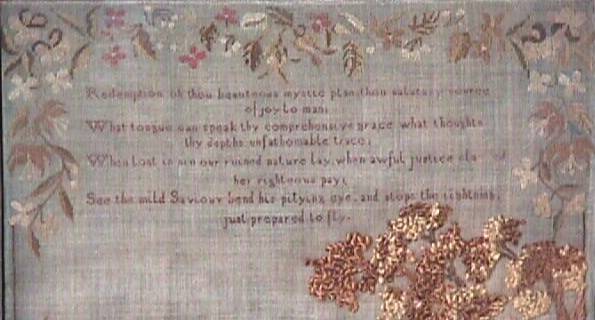 Redemption oh thou beauteous mystic plan, thou salutary source
of joy to man;
What tongue can speak thy comprehensive grace what thoughts
thy depths unfathomable trace;
When lost in sin our ruined nature lay, when awful justice
her righteous pay;
See the mild Saviour bend his pitying eye, and stops the lightning,
just prepared to fly.